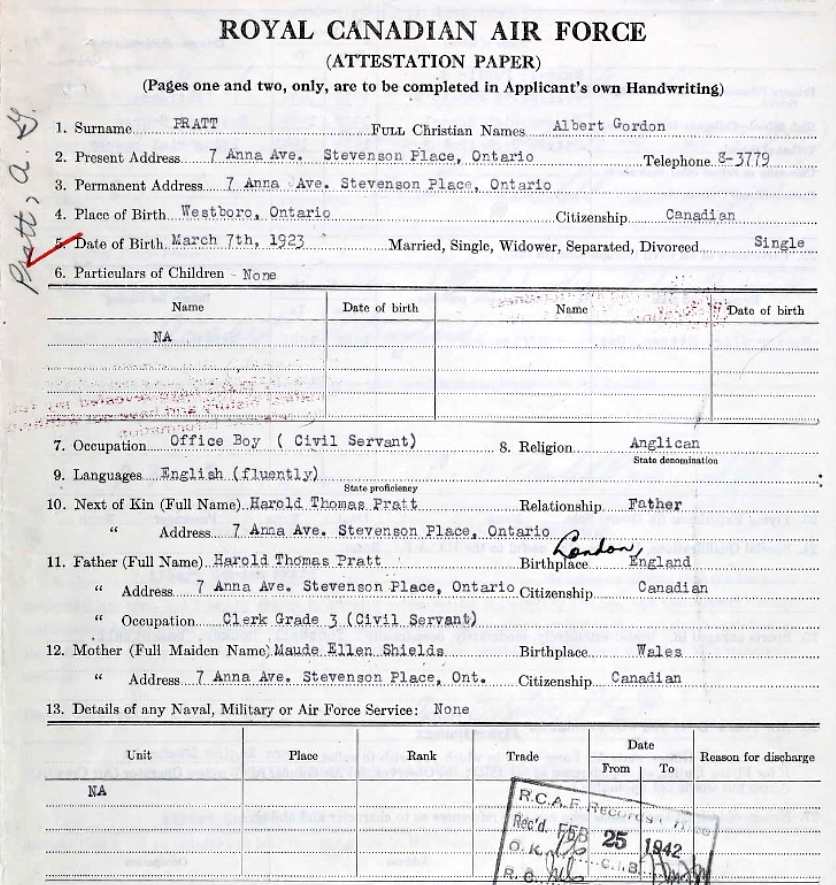 ROYAL CANADIAN AIR FORCE
(ATTESTATION PAPER)
(Pages one and two, only, are to be completed in Applicant's own Handwriting)
Pratt, A. G.
1. Surname PRATT FULL Christian Names Albert Gordon
2. Present Address 7 Anna Ave. Stevenson Place, Ontario Telephone 8-3779
3. Permanent Address 7 Anna Ave. Stevenson Place, Ontario
4. Place of Birth Westboro, Ontario Citizenship Canadian
5. Date of Birth March 7th, 1923 Married, Single, Widower, Separated, Divorced Single
6. Particulars of Children - None
Name Date of birth Name Date of birth
NA
7. Occupation Office Boy ( Civil Servant) 8. Religion Anglican
State denomination
9. Languages English (fluently)
State proficiency
10. Next of Kin (Full Name) Harold Thomas Pratt Relationship Father
" Address 7 Anna Ave. Stevenson Place, Ontario
11. Father (Full Name) Harold Thomas Pratt Birthplace London, England
" Address 7 Anna Ave. Stevenson Place, Ontario Citizenship Canadian
" Occupation Clerk Grade 3 (Civil Servant)
12. Mother (Full Maiden Name) Maude Ellen Shields Birthplace Wales
" Address 7 Anna Ave. Stevenson Place, Ont. Citizenship Canadian
13. Details of any Naval, Military or Air Force Service: None
Unit Place Rank Trade Date From To Reason for discharge
NA
R.C.A.F. Records Office
Rec'd. FEB 25 1942
O.K. C.I.B.
R.C.